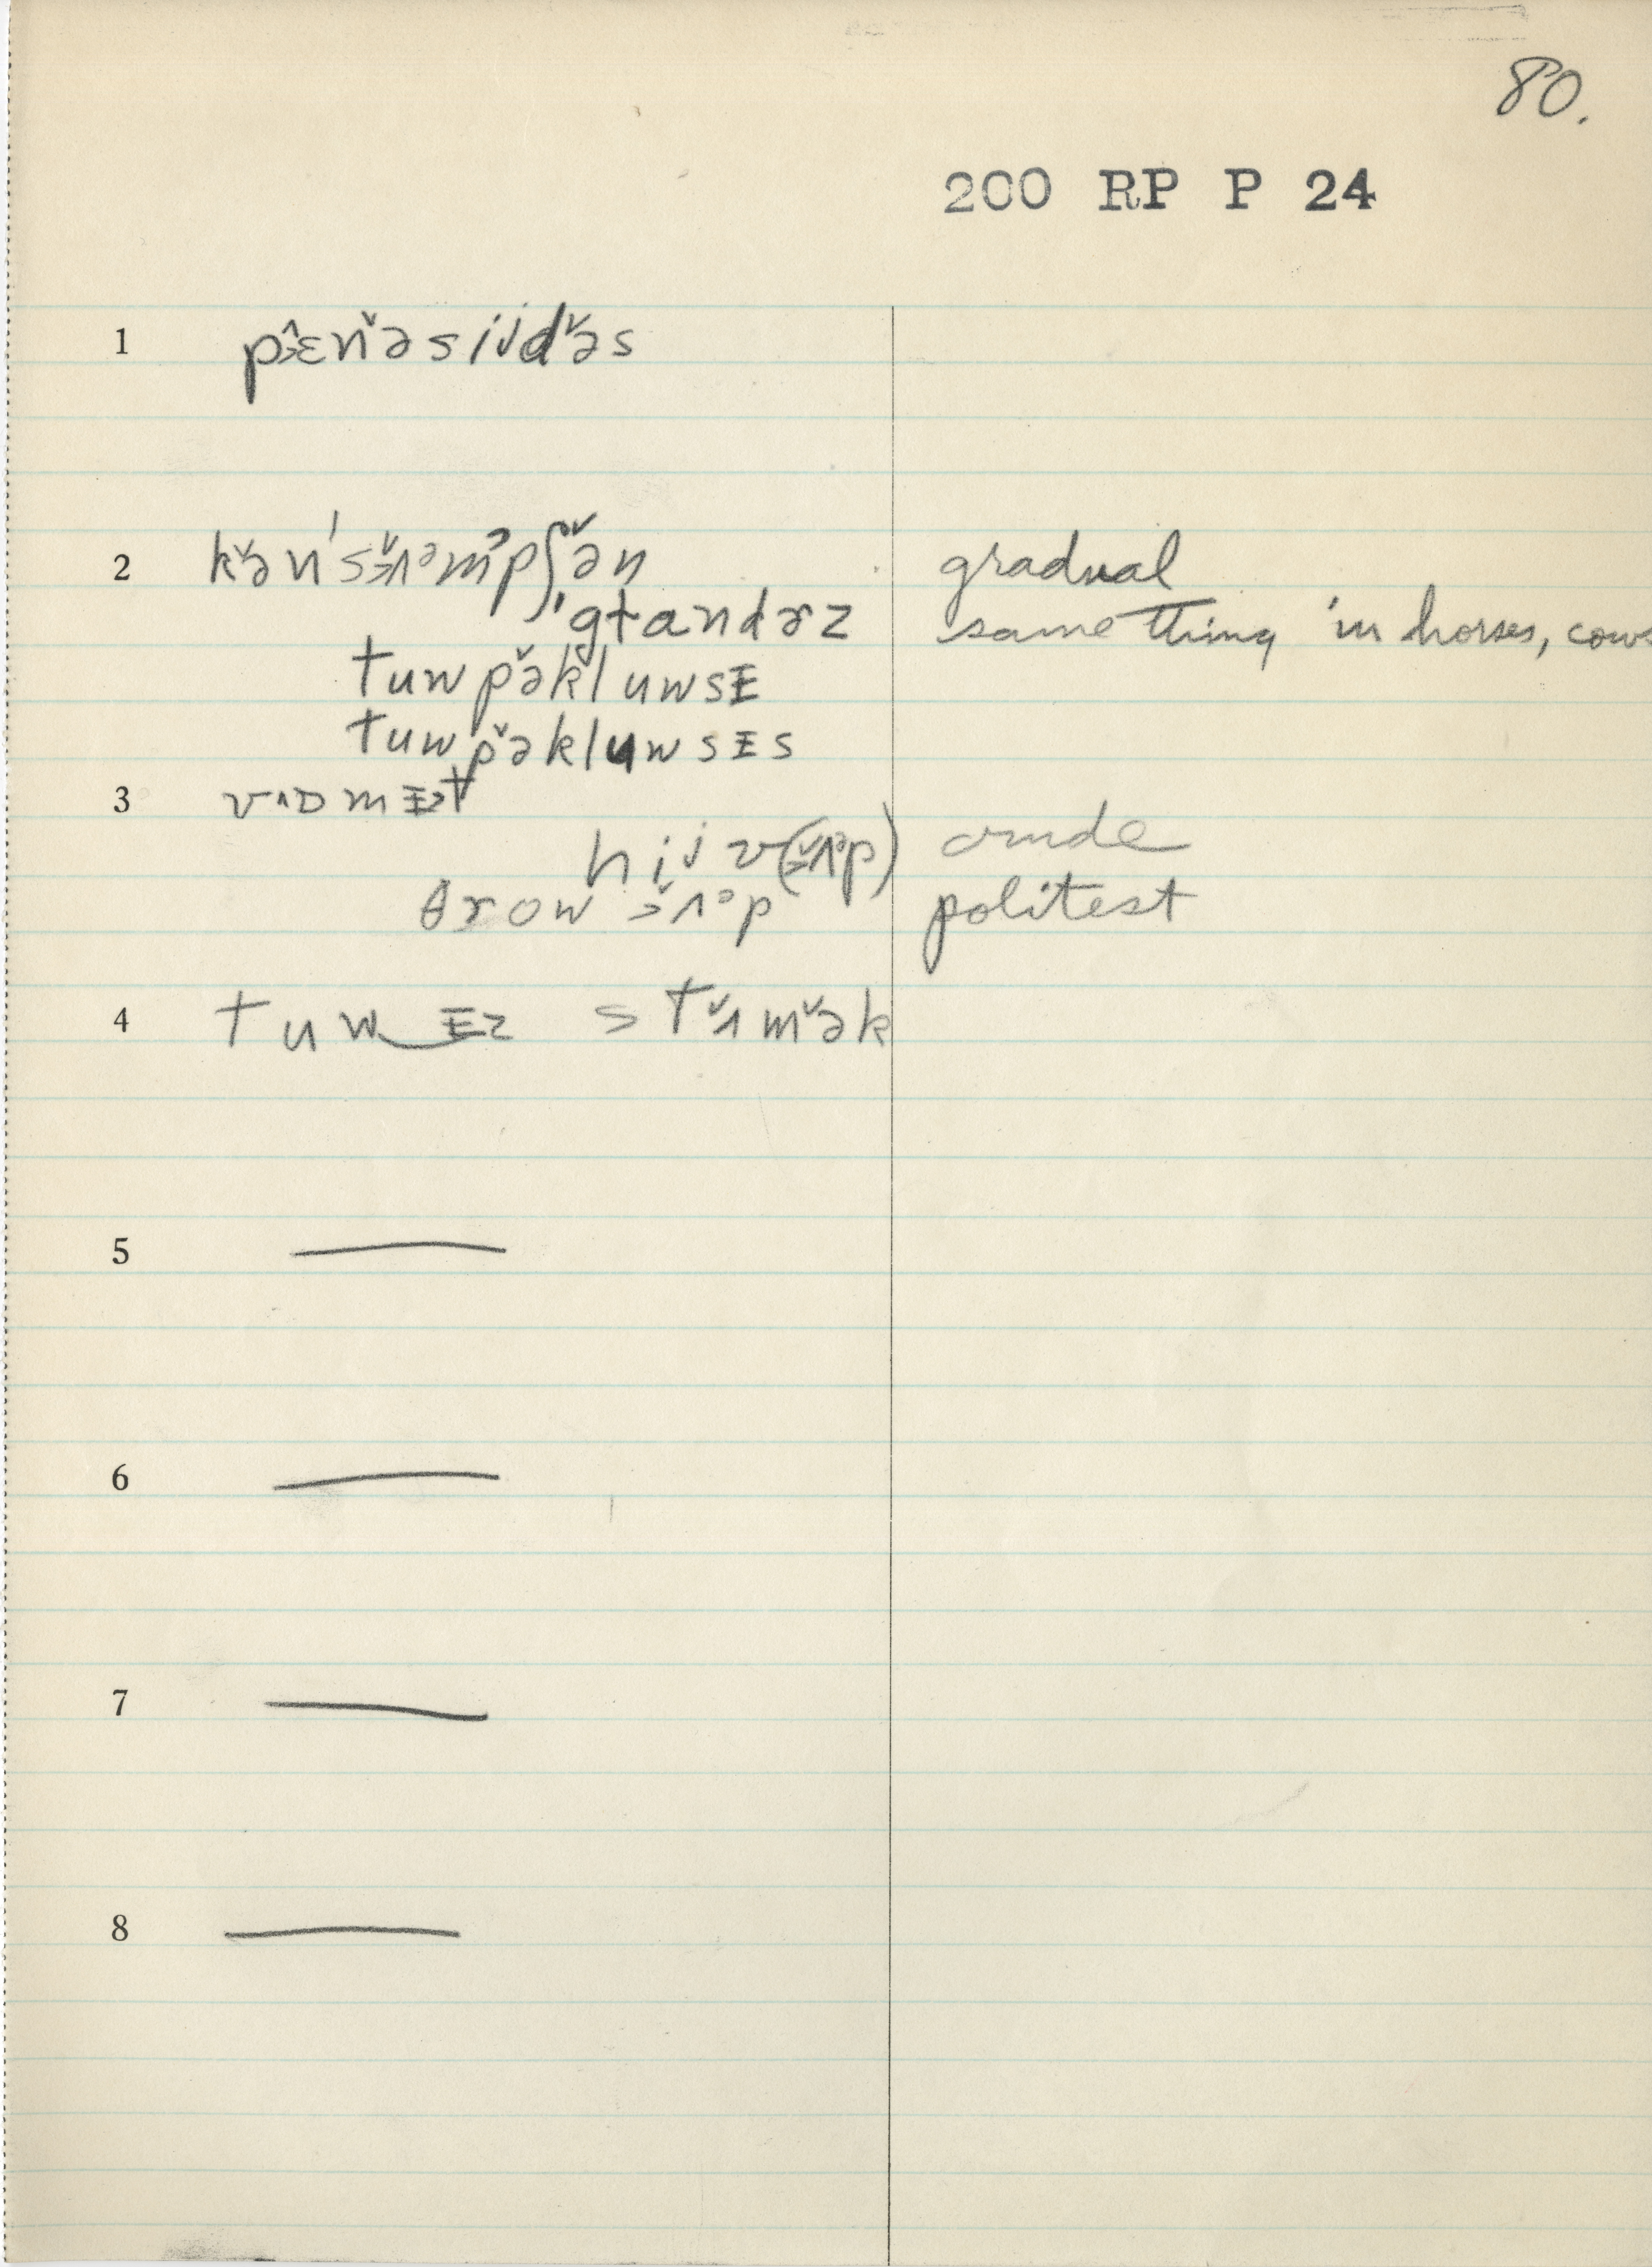 80.
200 RP P 24
1 pɛ̂˃nə̆sijdə̆s
2 kə̆n'sʌ̆˃ᵊmᵖpʃə̆n gradual
'gtandɚz same thing in horses, cows
tuwpə̆kluwsɪ
tuwpə̆kluwsɪs
3 vɒmɪt
hijv(ʌ̆˃ᵊp) crude
θrow ʌ̆˃ᵊp politest
4 tuw‿ɪz stʌ̆mə̆k
5 —
6 —
7 —
8 —